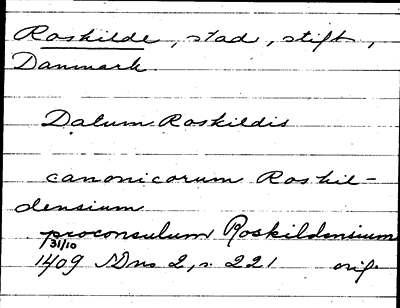 Roskilde, stad, stift,
Danmark
Datum Roskildis
canonicorum Roskil-
densium
proconsulum Roskildensium
31/10
1409 SDns 2, s. 221 orig